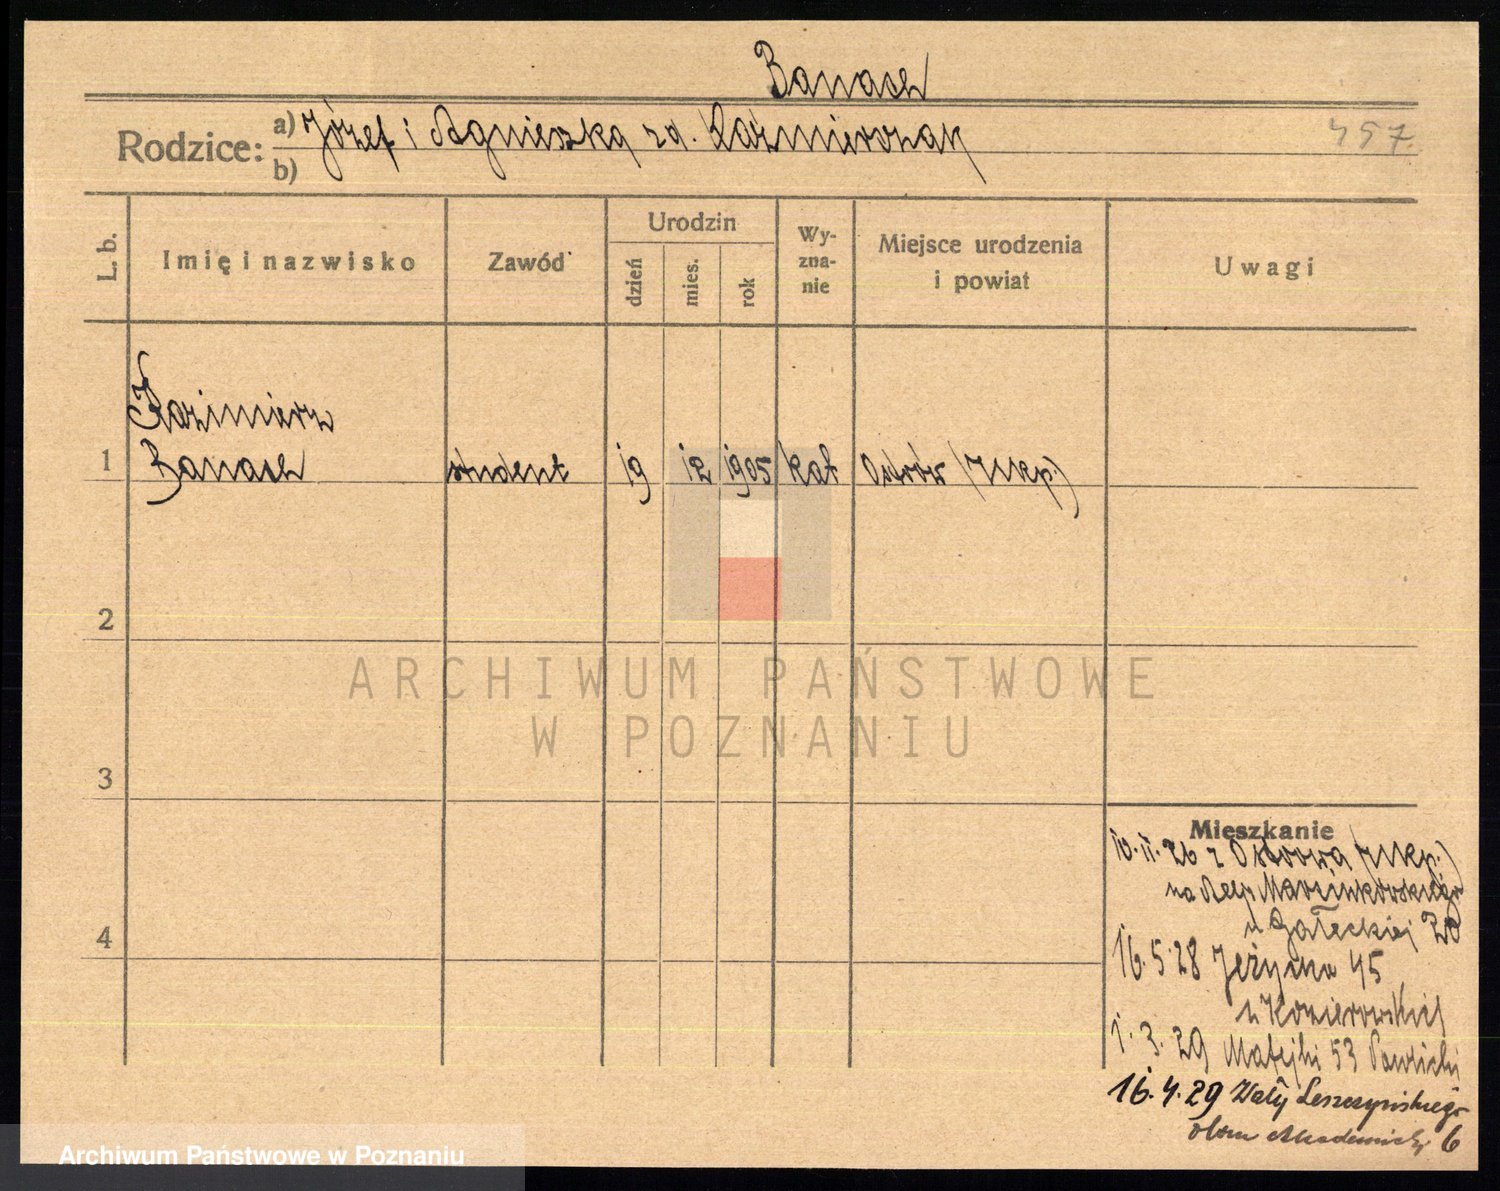 Banach
Rodzice: a) Józef i Agnieszka zd. Kaźmierczak
b)
457.
L. b.
Imię i nazwisko
Zawód
Urodzin
dzień
mies.
rok
Wy-
zna-
nie
Miejsce urodzenia
i powiat
Uwagi
Kazimierz
1 Banach student 19 12 1905 kat Ostrów (Wlkp.)
2
3
4
ARCHIWUM PAŃSTWOWE
W POZNANIU
Mieszkanie
10.11.26 z Ostrowa (Wlkp.)
na Marcinkowskiego
u Gałeckiej
16.5.28 Jeżycka 45
u
1.3.29 Matejki 53 Pawlicki
16.4.29 Wały Leszczyńskiego
Dom Akademicki 6
Archiwum Państwowe w Poznaniu